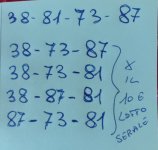 38-81-73-87
38-73-87
38-73-81
38-87-81
87-73-81
X
IL
10 E
LOTTO
SERALE